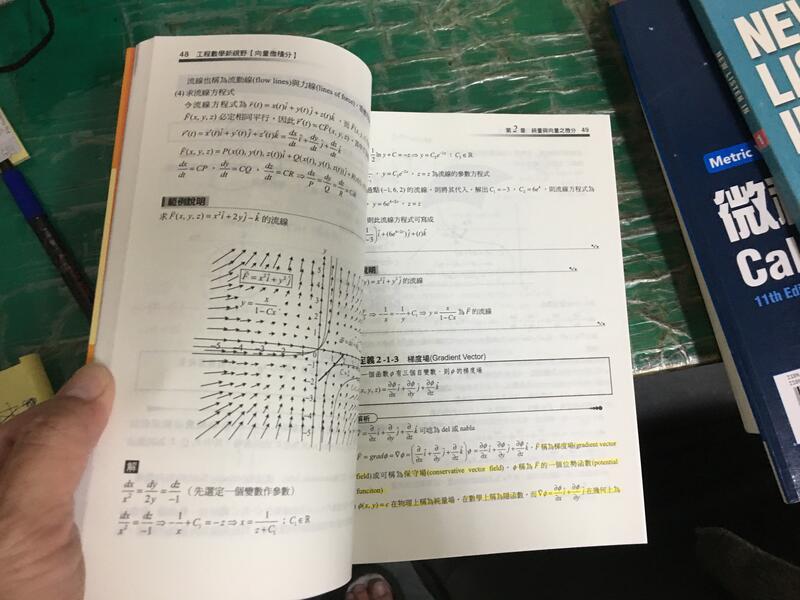 48 工程數學新視野【向量微積分】
流線也稱為流動線(flow lines)與力線(lines of force)
(4) 求流線方程式
令流線方程式為 r(t) = x(t)i + y(t)j + z(t)k，而
F(x, y, z) 必定相同平行，因此 r'(t) = CF(x, y, z)
r'(t) = x'(t)i + y'(t)j + z'(t)k = dx/dt i + dy/dt j + dz/dt k
F(x, y, z) = P(x(t), y(t), z(t))i + Q(x(t), y(t), z(t))j +
dx/dt = CP，dy/dt = CQ，dz/dt = CR ⇒ dx/P = dy/Q = dz/R
範例說明
求 F(x, y, z) = x²i + 2yj − k 的流線
F = x²i + y²j
y = x/(1−Cx)
解
dx/x² = dy/2y = dz/−1 （先選定一個變數作參數）
dx/x² = dz/−1 ⇒ −1/x + C₁ = −z ⇒ x = 1/(z + C₁)；C₁∈ℝ
第2章 純量與向量之微分 49
1/2 ln y + C = −z ⇒ y = C₂e⁻²ᶻ；C₂∈ℝ
，y = C₂e⁻²ᶻ，z = z 為流線的參數方程式
過點 (−1, 6, 2) 的流線，則將其代入，解出 C₁ = −3，C₂ = 6e⁴，則流線方程式為
，y = 6e⁴⁻²ᶻ，z = z
則此流線方程式可寫成
i + (6e⁴⁻²ᵗ)j + (t)k
說明
y) = x²i + y²j 的流線
⇒ −1/x = −1/y + C₁ ⇒ y = x/(1−Cx) 為 F 的流線
定義 2-1-3 梯度場(Gradient Vector)
一個函數 φ 有三個自變數，則 φ 的梯度場
(x, y, z) = ∂φ/∂x i + ∂φ/∂y j + ∂φ/∂z k
解析
∇ = ∂/∂x i + ∂/∂y j + ∂/∂z k 可唸為 del 或 nabla
F = gradφ = ∇φ = (∂/∂x i + ∂/∂y j + ∂/∂z k)φ = ∂φ/∂x i + ∂φ/∂y j + ∂φ/∂z k，F 稱為梯度場(gradient vector
field)或可稱為保守場(conservative vector field)，φ 稱為 F 的一個位勢函數(potential
funciton)
φ(x, y) = c 在物理上稱為純量場，在數學上稱為隱函數，而 ∇φ = ∂φ/∂x i + ∂φ/∂y j 在幾何上為
NEW LISTEN IN
Metric
微
Cal
11th Edi